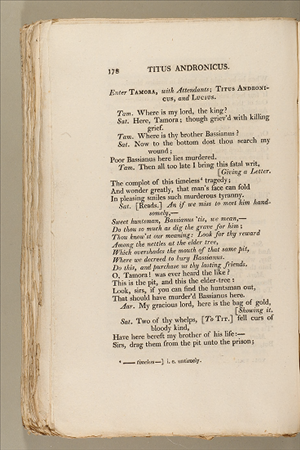 178 TITUS ANDRONICUS.
Enter TAMORA, with Attendants; TITUS ANDRONI-
CUS, and LUCIUS.
Tam. Where is my lord, the king?
Sat. Here, Tamora; though griev'd with killing
grief.
Tam. Where is thy brother Bassianus?
Sat. Now to the bottom dost thou search my
wound;
Poor Bassianus here lies murdered.
Tam. Then all too late I bring this fatal writ,
[Giving a Letter.
The complot of this timeless⁴ tragedy;
And wonder greatly, that man's face can fold
In pleasing smiles such murderous tyranny.
Sat. [Reads.] An if we miss to meet him hand-
somely,—
Sweet huntsman, Bassianus 'tis, we mean,—
Do thou so much as dig the grave for him;
Thou know'st our meaning: Look for thy reward
Among the nettles at the elder tree,
Which overshades the mouth of that same pit,
Where we decreed to bury Bassianus.
Do this, and purchase us thy lasting friends.
O, Tamora! was ever heard the like?
This is the pit, and this the elder-tree:
Look, sirs, if you can find the huntsman out,
That should have murder'd Bassianus here.
Aar. My gracious lord, here is the bag of gold,
[Showing it.
Sat. Two of thy whelps, [To TIT.] fell curs of
bloody kind,
Have here bereft my brother of his life:—
Sirs, drag them from the pit unto the prison;
⁴ —— timeless—] i. e. untimely.